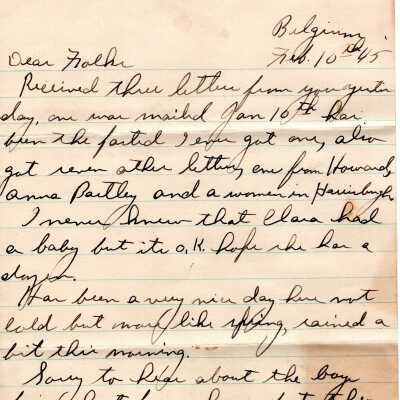 Belgium
Feb. 10th 45
Dear Folks
Received three letters from you yester
day, one was mailed Jan 16th has
been the fasted I ever got one, also
got seven other letters, one from Howard,
Anna Pastley and a women in Harrisburgh.
I never knew that Clara had
a baby but its O.K. hope she has a
dozen.
Has been a very nice day here not
cold but more like spring, rained a
bit this morning.
Sorry to hear about the boys